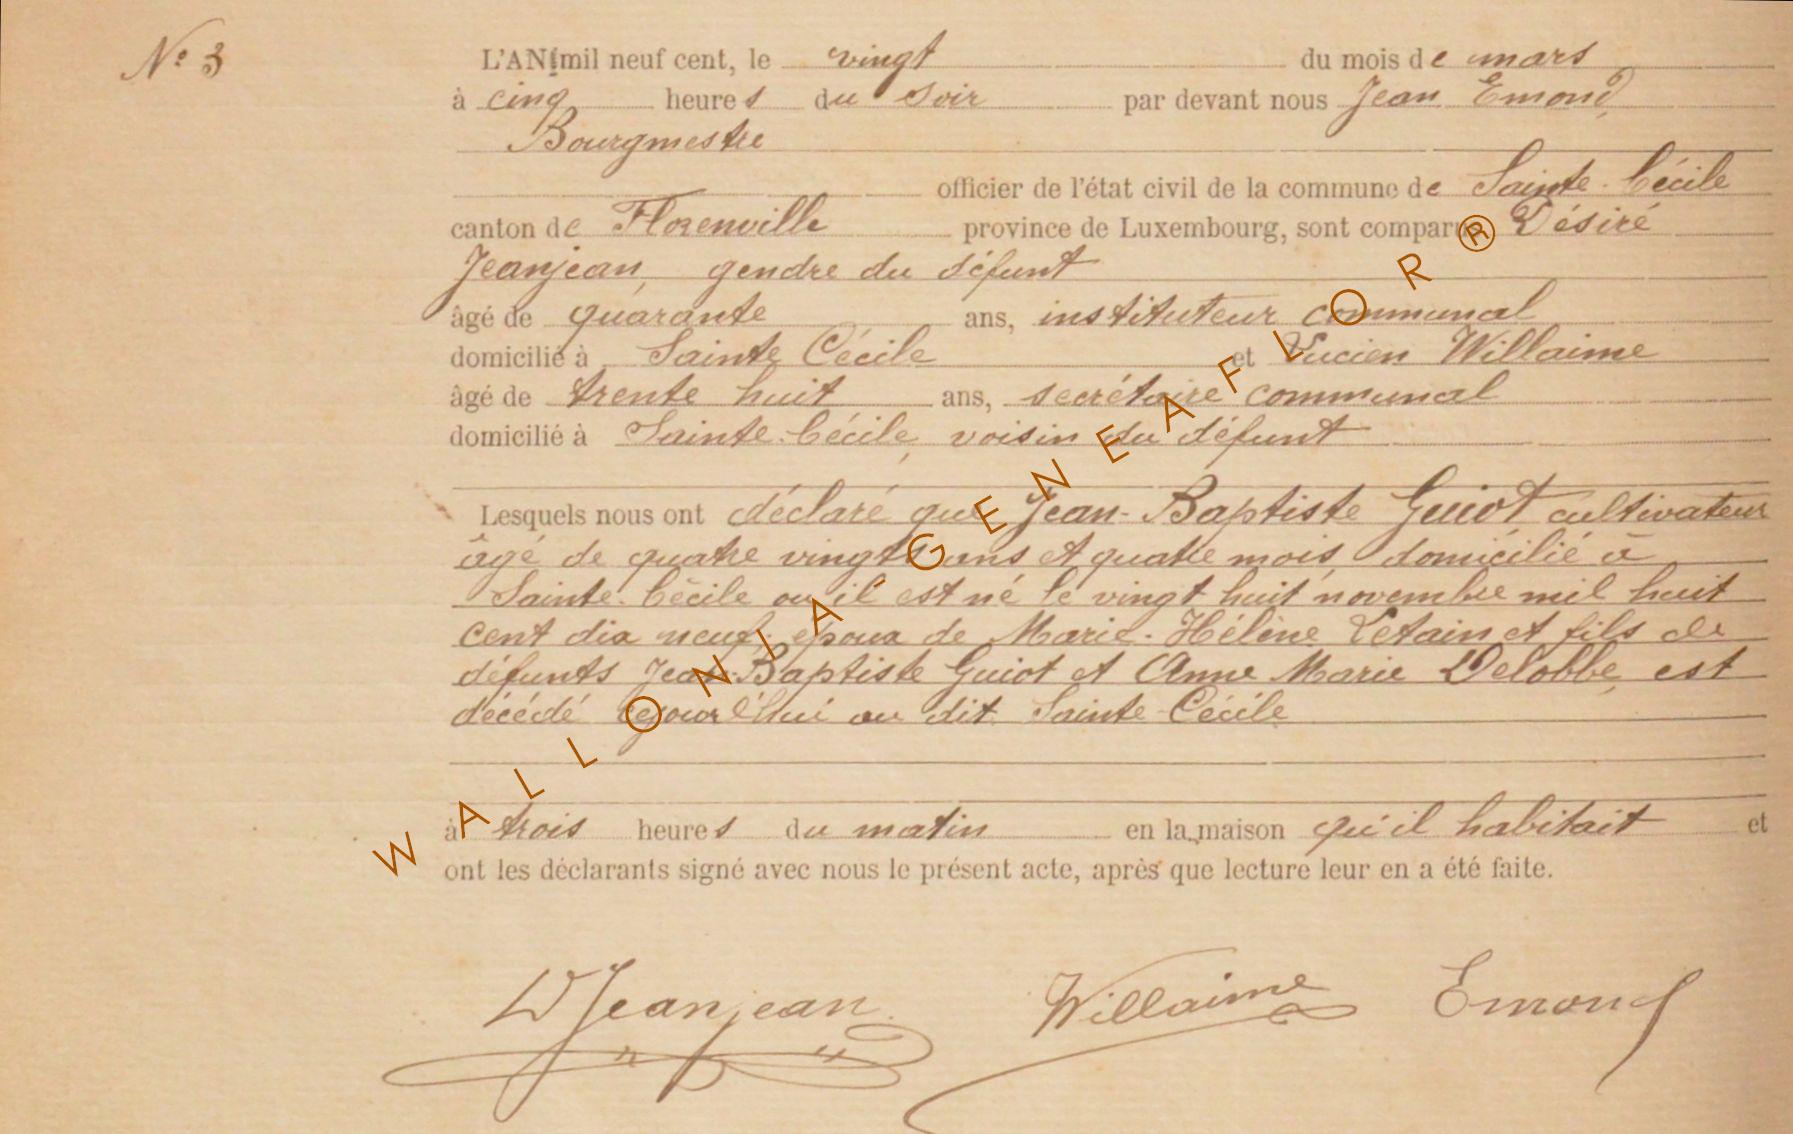 N° 3
L'AN mil neuf cent, le vingt du mois de mars
à cinq heures du soir par devant nous Jean Emond,
Bourgmestre
officier de l'état civil de la commune de Sainte-Cécile
canton de Florenville province de Luxembourg, sont comparus Désiré
Jeanjean, gendre du défunt
âgé de quarante ans, instituteur communal
domicilié à Sainte Cécile et Lucien Willaime
âgé de trente huit ans, secrétaire communal
domicilié à Sainte-Cécile, voisin du défunt
Lesquels nous ont déclaré que Jean-Baptiste Guiot cultivateur
âgé de quatre vingts ans et quatre mois, domicilié à
Sainte-Cécile où il est né le vingt huit novembre mil huit
cent dix neuf, époux de Marie-Hélène Letain et fils de
défunts Jean-Baptiste Guiot et Anne Marie Delobbe, est
décédé cejourd'hui au dit Sainte-Cécile
à trois heures du matin en la maison qu'il habitait et
ont les déclarants signé avec nous le présent acte, après que lecture leur en a été faite.
D Jeanjean Willaime Emond
WALLONIA GENEAFLOR®